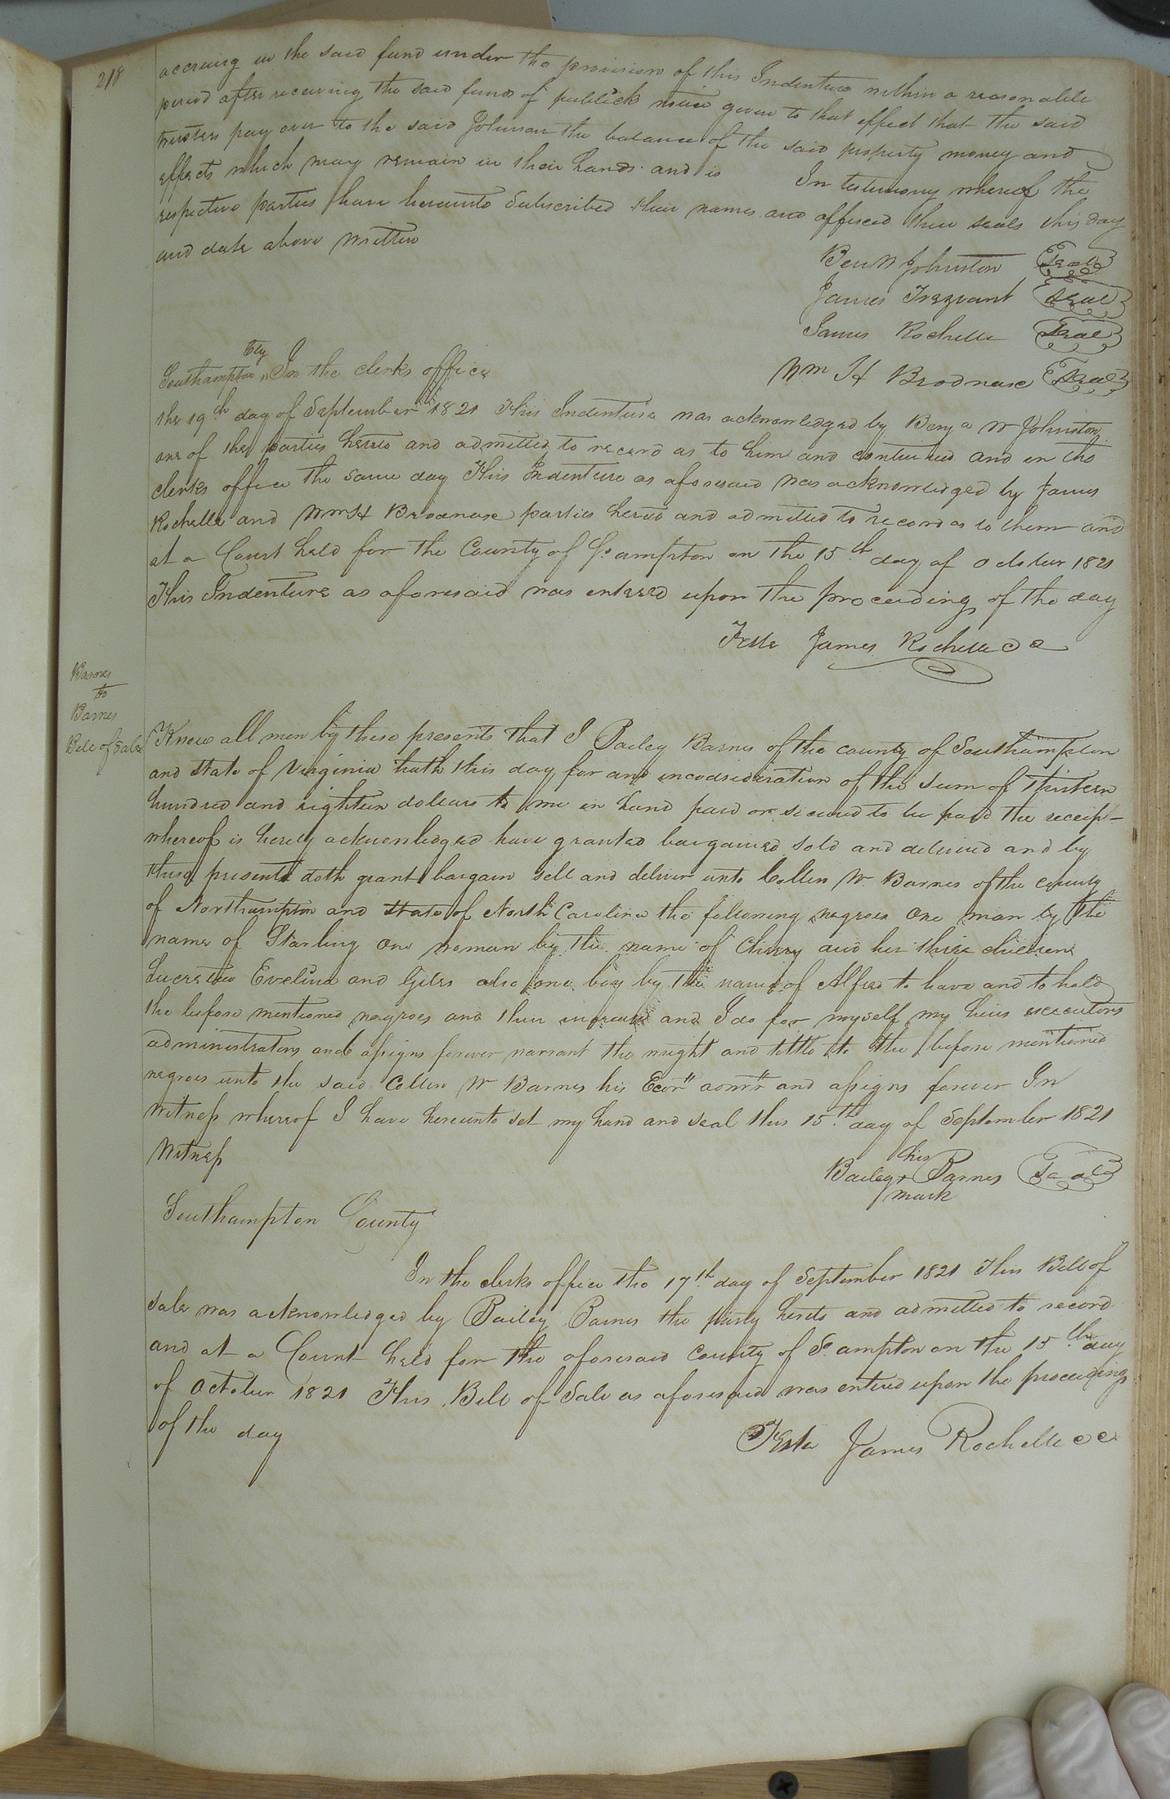 218
accruing in the said fund under the provision of this Indenture within a reasonable
period after receiving the said fund of publick notice given to that effect that the said
trustees pay over to the said Johnson the balance of the said property money and
effects which may remain in their hands and is In testimony whereof the
respective parties have hereunto Subscribed their names and affixed their seals this day
and date above written
Ben W Johnston Seal
James Trezvant Seal
James Rochelle Seal
Wm H Brodnax Seal
Southampton Cty In the clerks office
the 19th day of September 1821 This Indenture was acknowledged by Benja W Johnston
one of the parties hereto and admitted to record as to him and continued and in the
clerks office the same day This Indenture as aforesaid was acknowledged by James
Rochelle and Wm H Brodnax parties hereto and admitted to record as to them and
at a Court held for the County of So ampton on the 15th day of October 1821
This Indenture as aforesaid was entered upon the proceedings of the day
Teste James Rochelle C C
Barnes
to
Barnes
Bill of Sale
Know all men by these presents that I Bailey Barnes of the county of Southampton
and State of Virginia hath this day for and inconsideration of the sum of thirteen
hundred and eighteen dollars to me in hand paid or secured to be paid the receipt
whereof is hereby acknowledged have granted bargained sold and delivered and by
these presents doth grant bargain sell and deliver unto Collin W Barnes of the county
of Northampton and State of North Carolina the following negroes One man by the
name of Starling one woman by the name of Cherry and her three children
Lucretia Evelina and Giles also one boy by the name of Alfred to have and to hold
the before mentioned negroes and their increase and I do for myself my heirs executors
administrators and assigns forever warrant the wright and tittle to the before mentioned
negroes unto the said Collin W Barnes his Ecors admrs and assigns forever In
Witness whereof I have hereunto set my hand and seal this 15th day of September 1821
Witness
his
Bailey + Barnes Seal
mark
Southampton County
In the clerks office the 17th day of September 1821 This Bill of
sale was acknowledged by Bailey Barnes the party hereto and admitted to record
and at a Court held for the aforesaid County of So ampton on the 15th day
of October 1821 This Bill of Sale as aforesaid was entered upon the proceedings
of the day
Teste James Rochelle C C